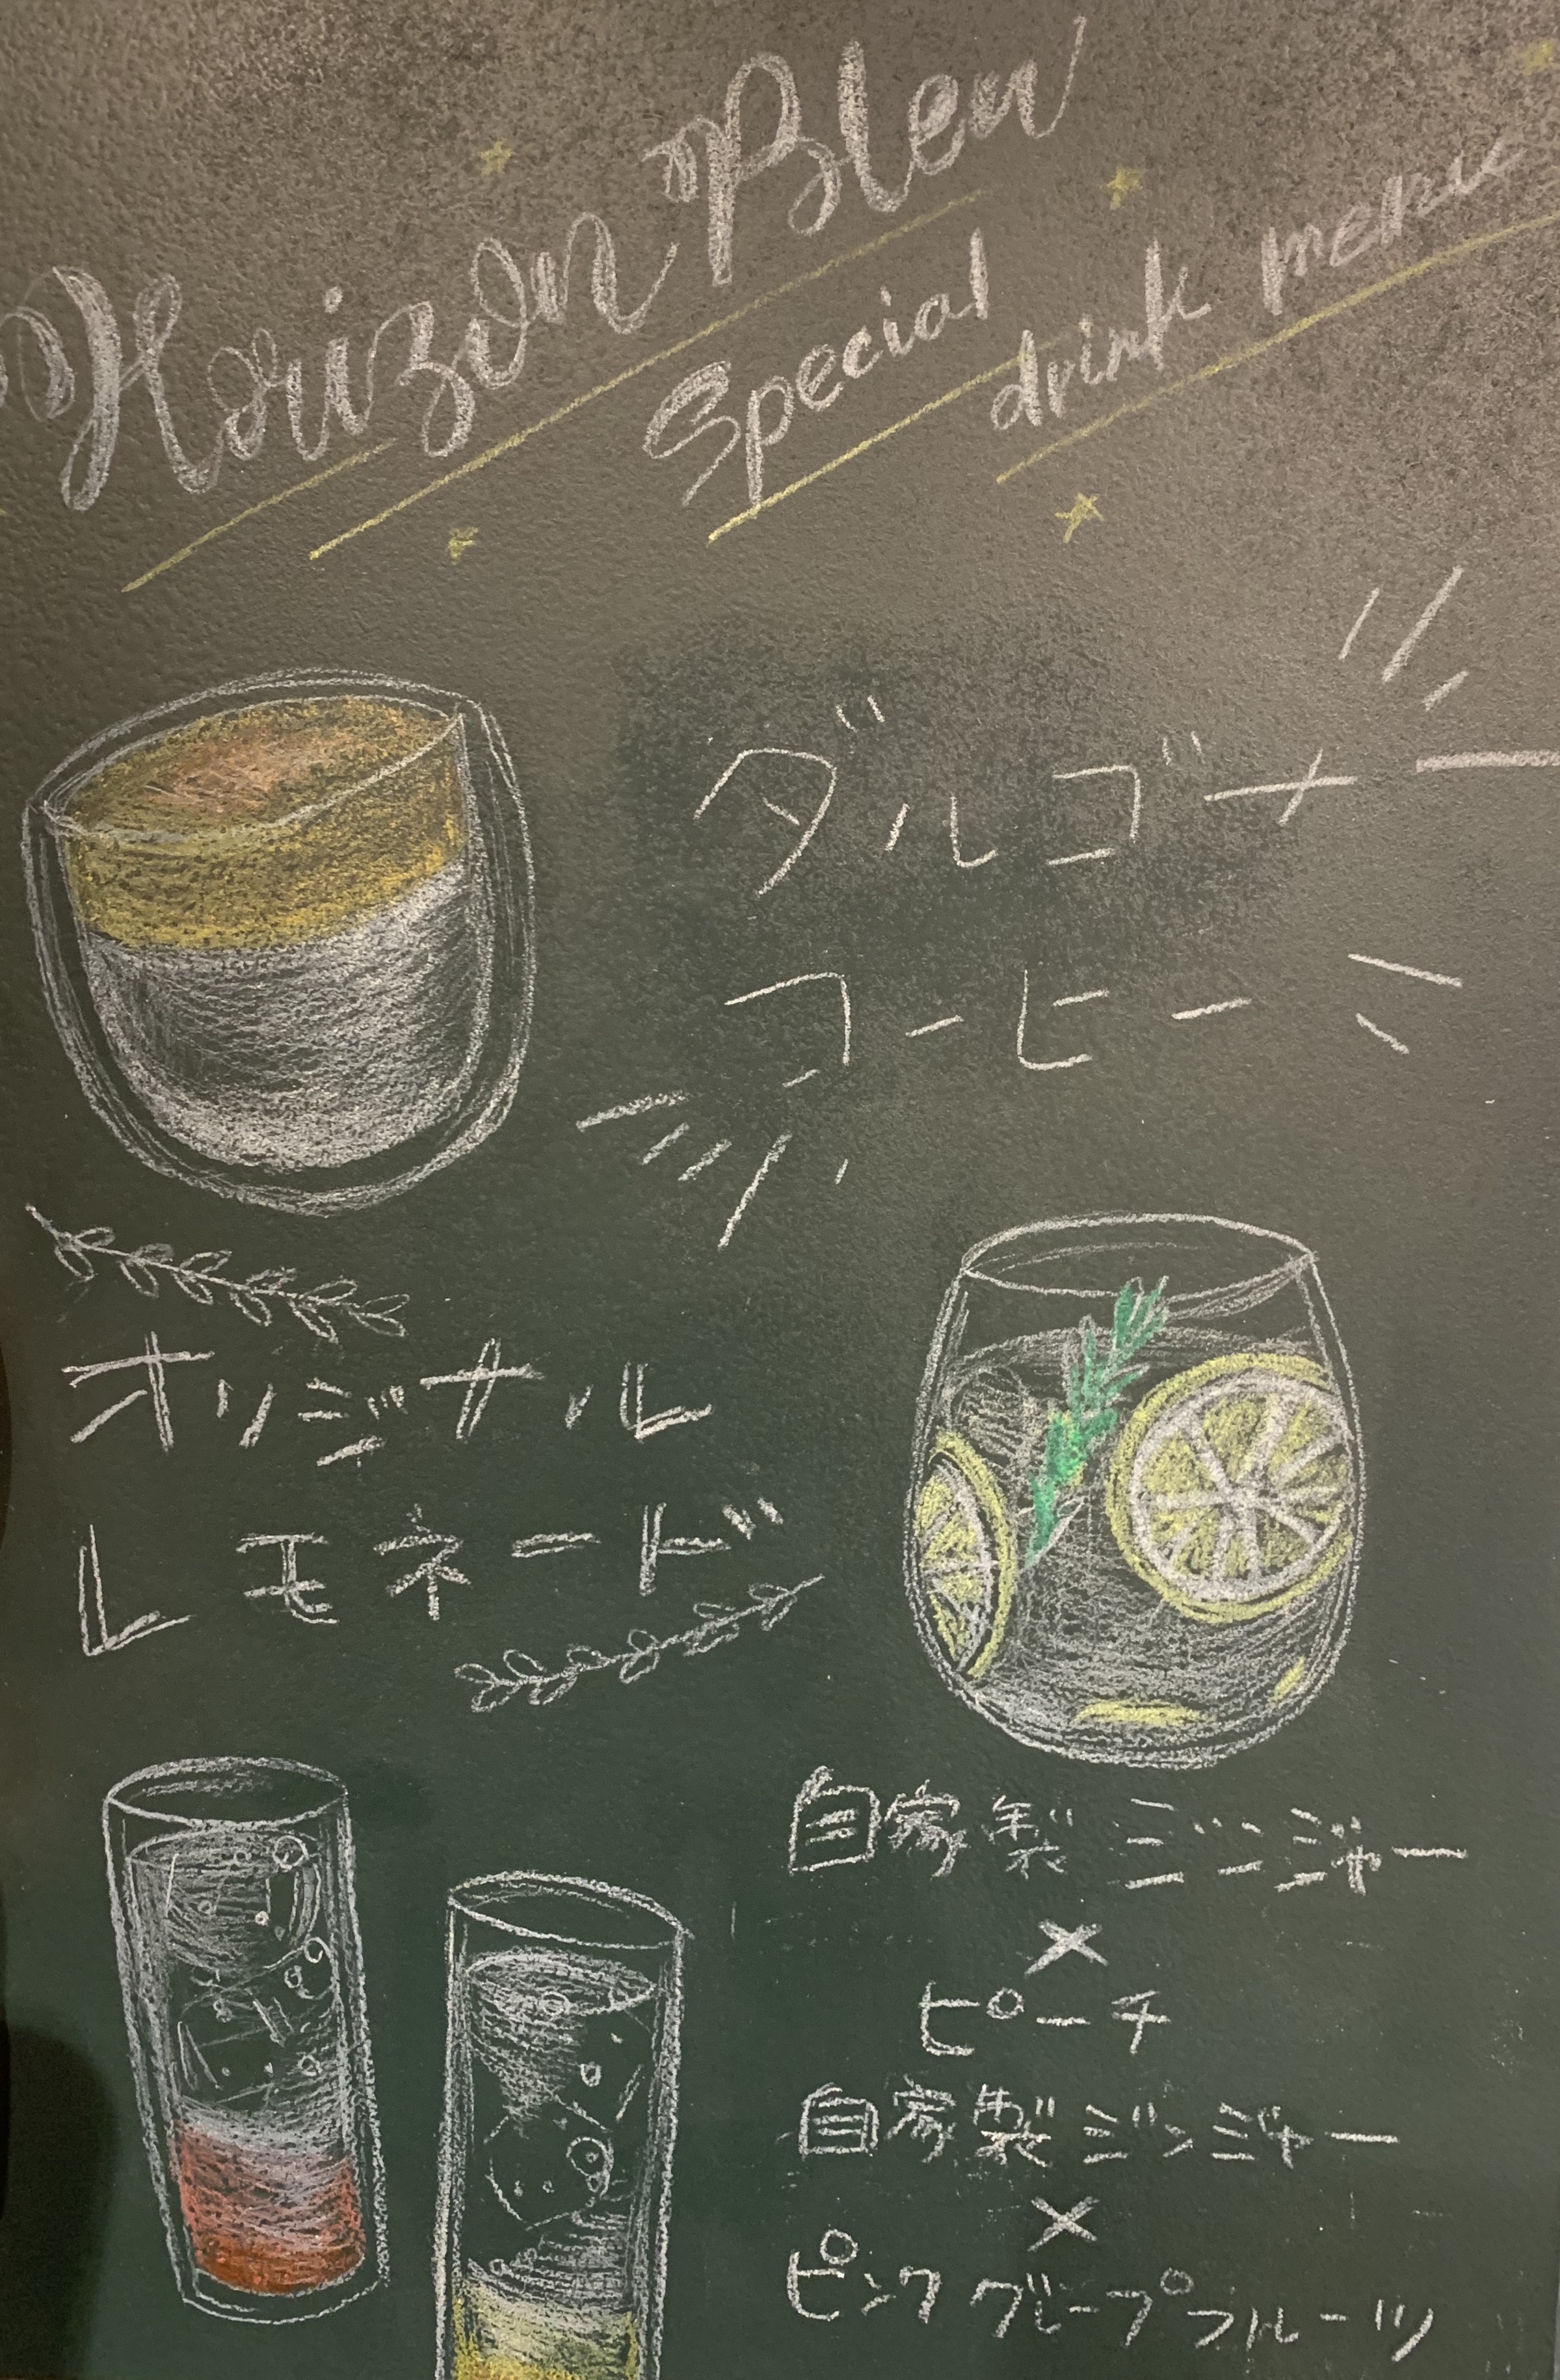 Horizon Bleu
Special
drink menu
ダルゴナー
コーヒー
オリジナル
レモネード
自家製ジンジャー
×
ピーチ
自家製ジンジャー
×
ピンクグレープフルーツ